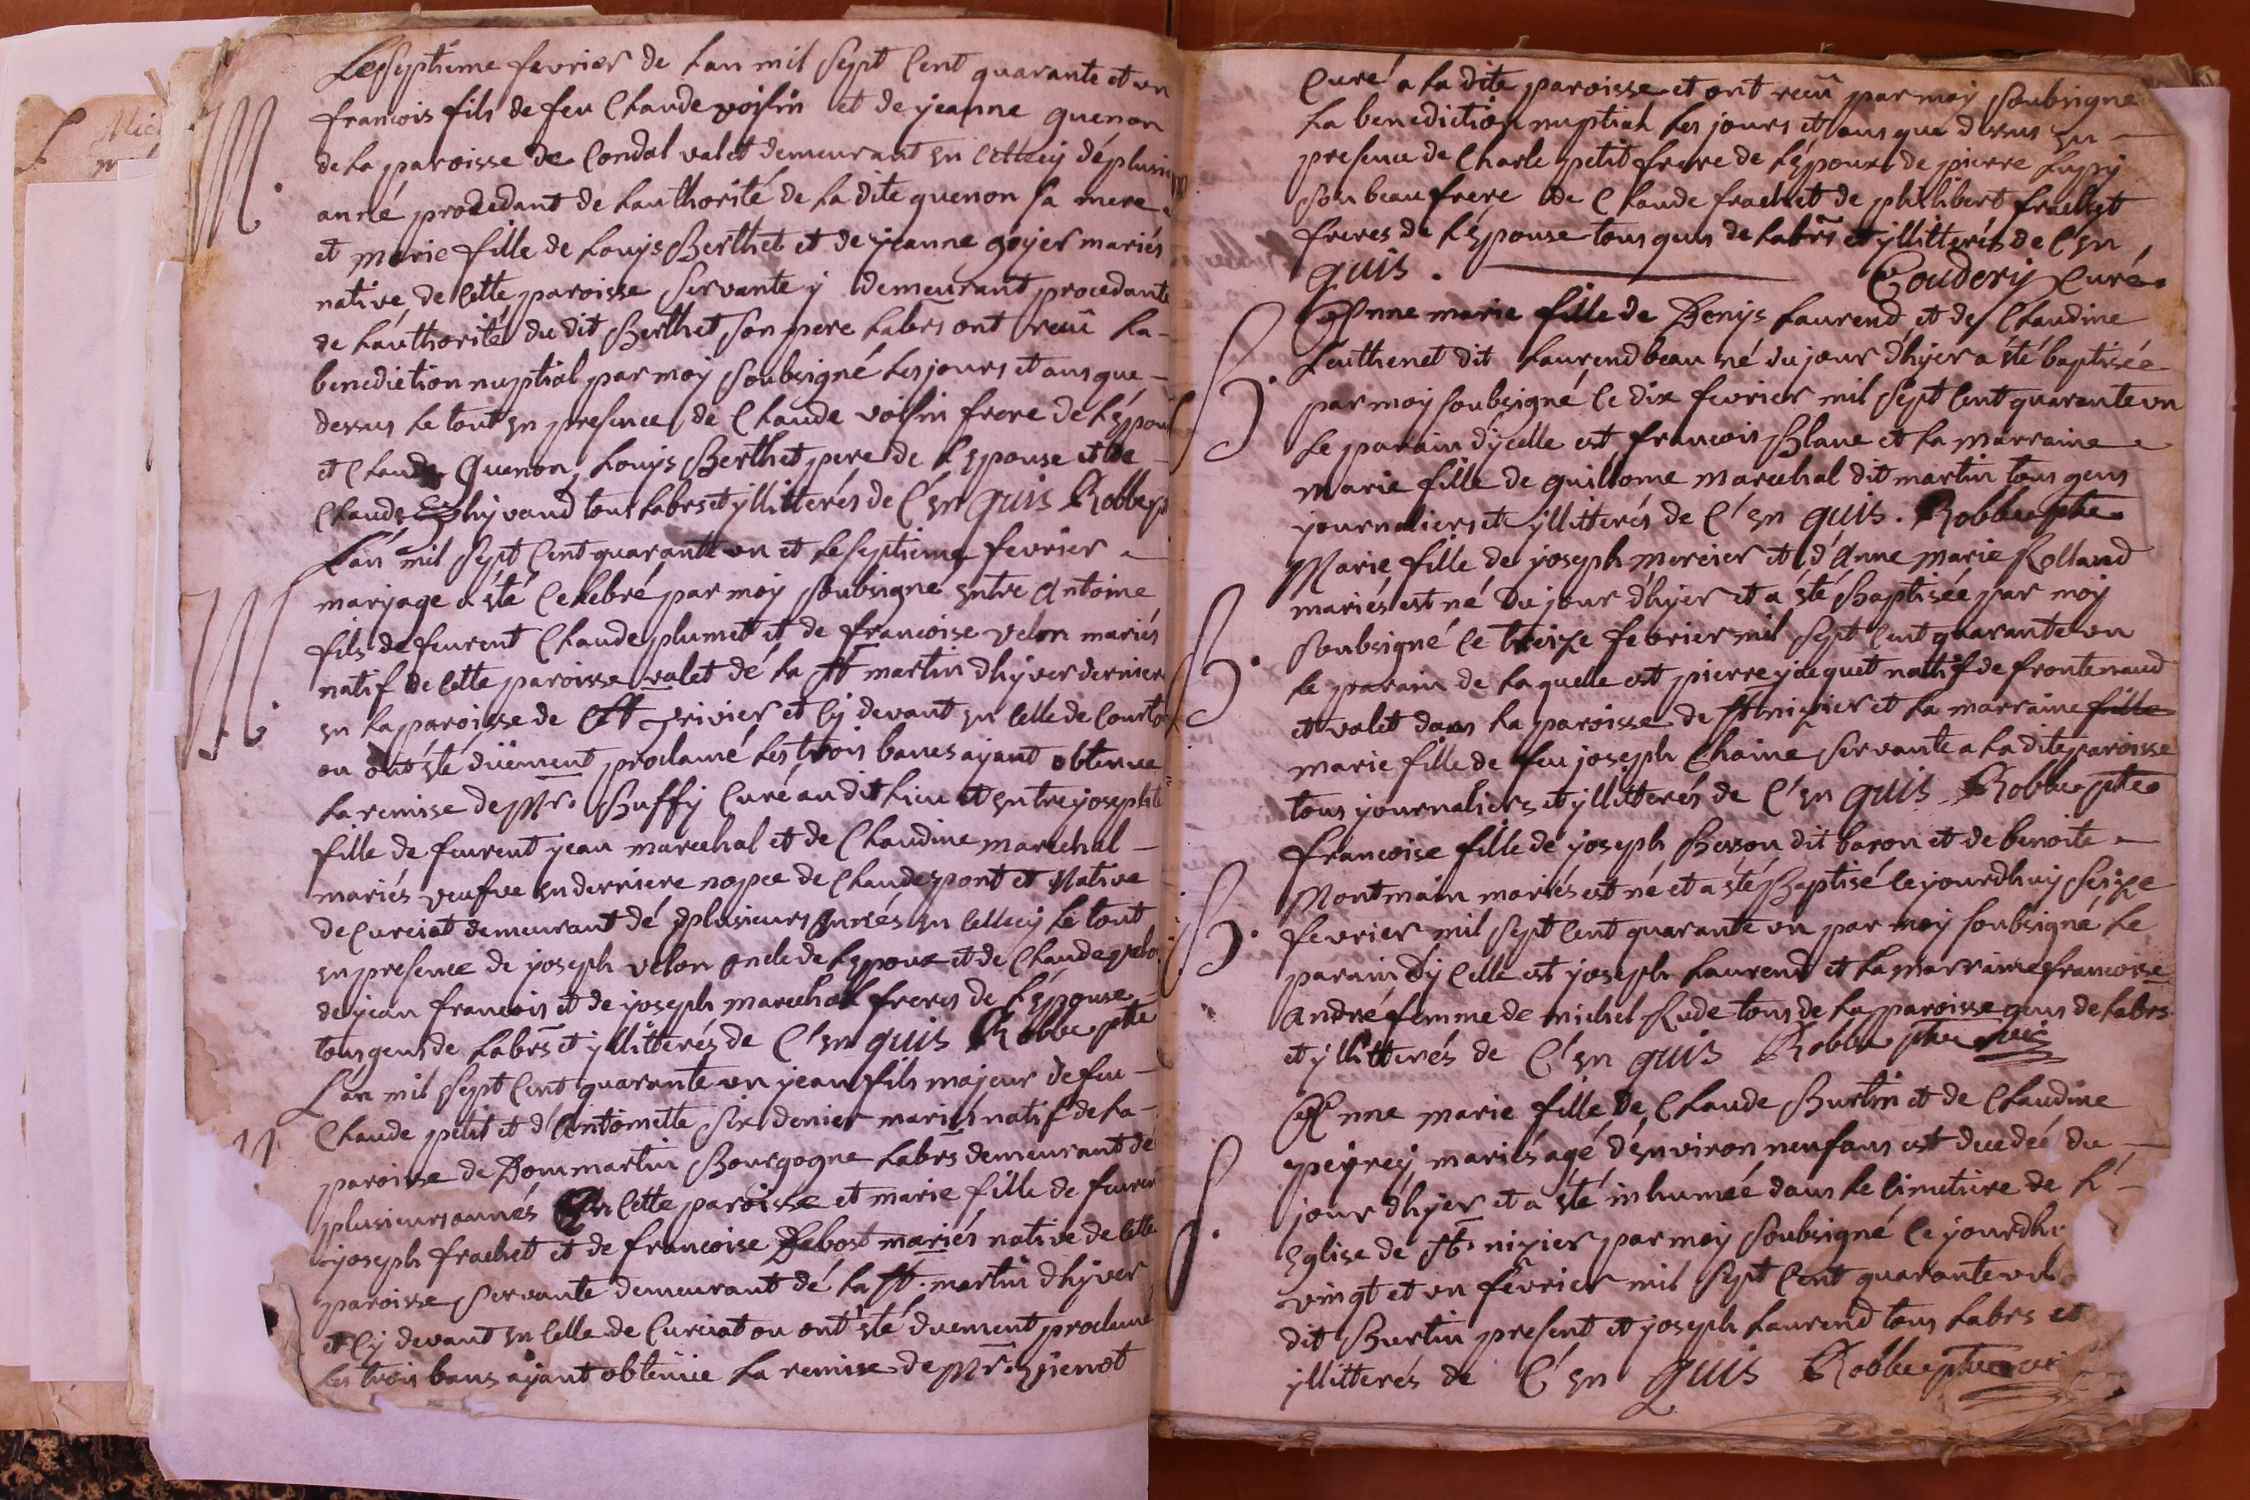 Le septieme fevrier de Lan mil Sept Cent quarante et un
M. francois fils de feu Claude voisin et de jeanne guenon
de La paroisse de Condal valet demeurant en Cellecy dé plusieurs
anné procedant de Lauthorité de La dite guenon Sa mere
et marie fille de Louys Berthet et de jeanne goyer mariés
native de Cette paroisse Servante y demeurant procedante
de Lauthorité du dit Berthet Son pere Labrs ont reçû La
benediction nuptial par moy Soubsigné Les jours et ans que
dessus Le tout en presence de Claude voisin frere de L'Epoux
et Claude guenon, Louys Berthet pere de L'Epouse et de
Claude hyvand tous Labrs et yllitterés de C'en quis Robbe p
M. Lan mil Sept Cent quarante un et Le septieme fevrier
maryage a eté Celebré par moy Soubsigné entre Antoine
fils de feurent Claude plumet et de francoise velon mariés
natif de Cette paroisse valet dé La St martin dhyver dernier
en La paroisse de St trivier et Cy devant en Celle de Courto
ou ont eté düement proclamé Les trois bancs ayant obtenue
La remise de Mr. Buffy Curé audit Lieu et entre josephte
fille de feurent jean marechal et de Claudine marechal
mariés veufve en derriere nopce de Claude pont et Native
de Curciat demeurant dé plusieurs annés en Cellecy Le tout
en presence de joseph velon oncle de L'Epoux et de Claude velon
de jean francois et de joseph marechal freres de L'Epouse
tous gens de Labrs et yllitterés de C'en quis Robbe ptre
M. L'an mil Sept Cent quarante un jean fils majeur de feu
Claude petit et d'Antoinette Six denier mariés natif de La
paroisse de Dommartin Bourgogne Labrs demeurant dé
plusieurs annés En Cette paroisse et marie fille de feurent
joseph frachet et de francoise Debost mariés native de Cette
paroisse Servante demeurant dé La St. martin dhyver
et Cy devant en Celle de Curciat ou ont eté duement proclamé
Les trois bans ayant obtenue La remise de Mr. guenot
Curé a La dite paroisse et ont reçû par moy Soubsigné
La benediction nuptial Les jours et ans que dessus en
presence de Charle petit frere de L'Epoux de pierre Lupy
Son beau frere de Claude frachet de philibert frachet
freres de L'Epouse tous gens de Labrs et yllitterés de C'en
quis. Coudery Curé.
B. Anne marie fille de Denys Laurend et de Claudine
Leuthenet dit Laurend beau né du jour dhyer a eté baptisée
par moy soubsigné Ce dix fevrier mil Sept Cent quarante un
Le parain d'ycelle est francois Blanc et La marraine
marie fille de guillome marechal dit martin tous gens
journaliers et yllitterés de C'en quis. Robbe ptre
B. Marie fille de joseph mercier et d'Anne marie Rolland
mariés est né Du jour d'hyer et a eté Baptisée par moy
Soubsigné Ce treize fevrier mil Sept Cent quarante un
Le parain de Laquelle est pierre jacquet natif de frontenaud
et valet dans La paroisse de St nizier et La marraine fille
marie fille de feu joseph Chaine Servante a La dite paroisse
tous journaliers et yllitterés de C'en quis Robbe ptre
B. francoise fille de joseph Berson dit baron et de benoite
Montmain mariés est né et a eté Baptisé Ce jourdhuy Seize
fevrier mil Sept Cent quarante un par moy Soubsigné Le
parain dy Celle est joseph Laurend et La marraine francoise
André femme de michel Rude tous de La paroisse gens de Labrs
et yllitterés de C'en quis Robbe ptre vic
S. Anne marie fille De Claude Burtin et de Claudine
peyrey mariés agé d'environ neuf ans est decedée du
jour d'hyer et a eté inhumée dans Le Cimetiere de L'
Eglise de St. nizier par moy Soubsigné Ce jourdhu
vingt et un fevrier mil Sept Cent quarante un
dit Burtin present et joseph Laurend tous Labrs et
yllitterés de C'en quis Robbe ptre vic